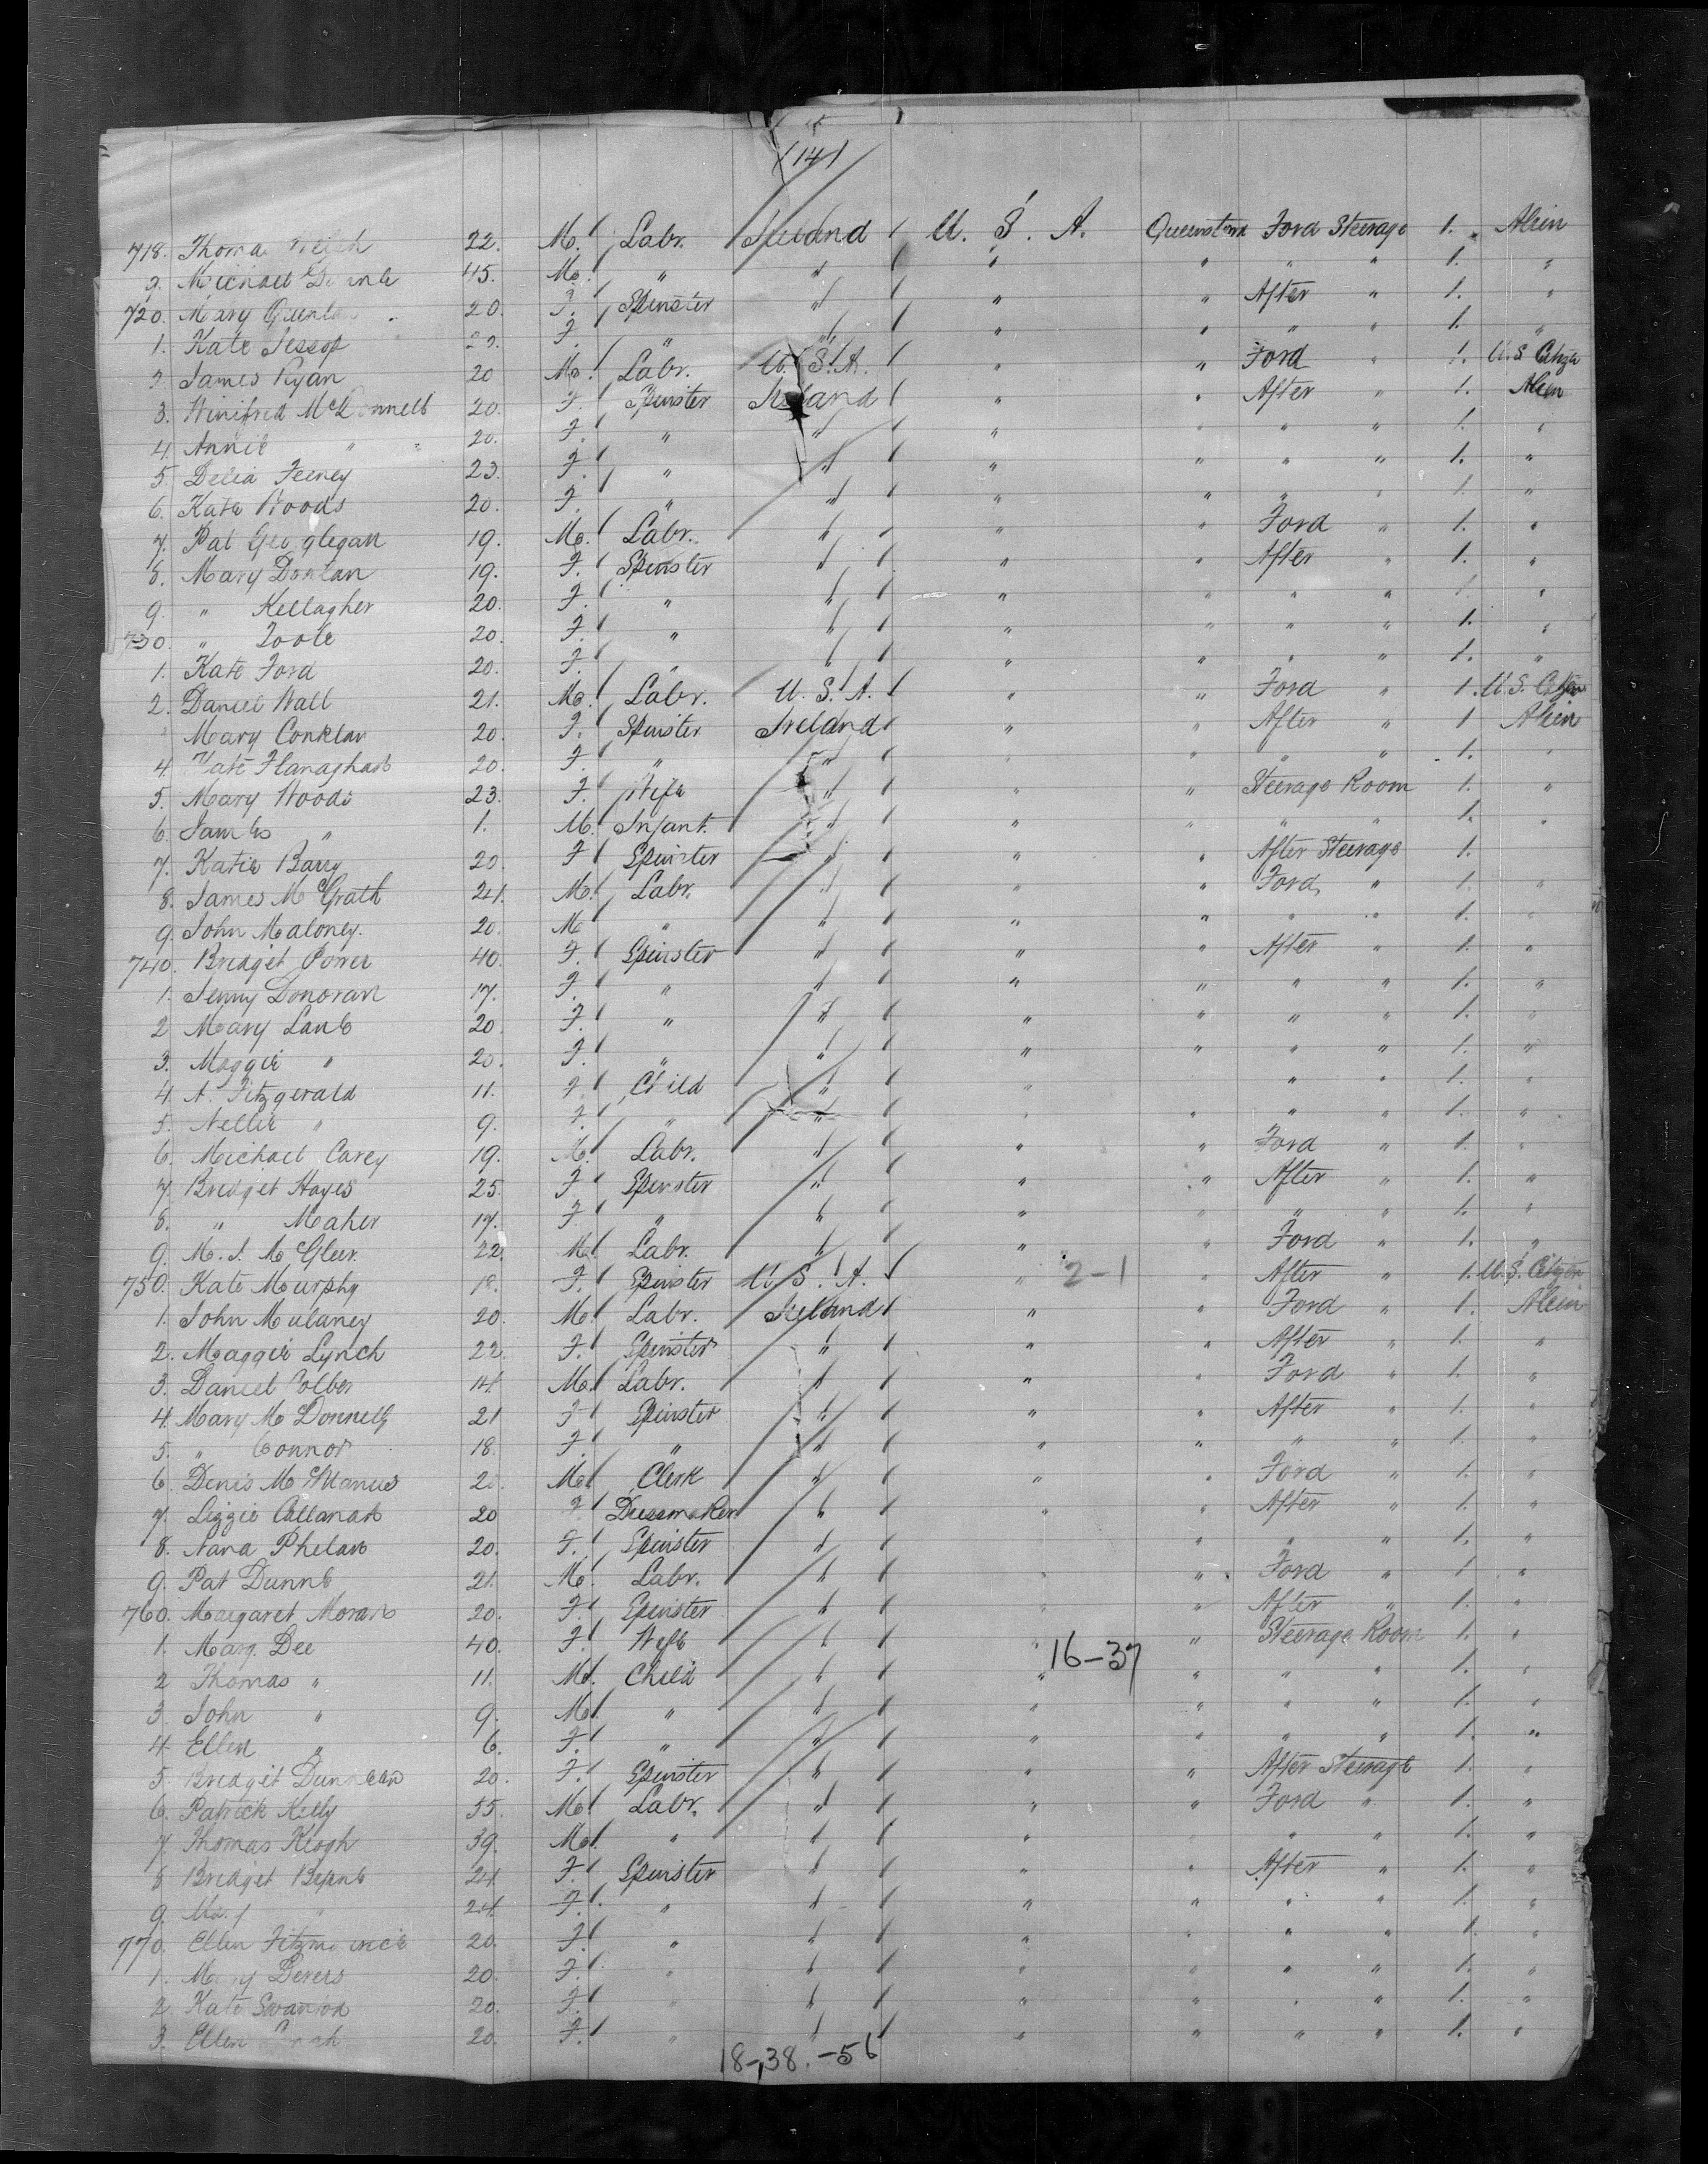 (14)
718. Thomas 22. M. Labr. Ireland U. S. A. Queenstown Ford Steerage 1. Alein
9. Michael 45. M. " " " " " " 1. "
720. Mary 20. F. Spinster " " " After " 1. "
1. Kate Jessop 22. F. " " " " " " 1. "
2. James Ryan 20 M. Labr. U. S. A. " " Ford " 1. U.S Citizen
3. Winifred McDonnell 20. F. Spinster Ireland " " After " 1. Alein
4. Annie " 20. F. " " " " " " 1. "
5. Delia Feeney 23. F. " " " " " " 1. "
6. Kate Woods 20. F. " " " " " " 1. "
7. Pat Geoglegan 19. M. Labr. " " " Ford " 1. "
8. Mary Donlan 19. F. Spinster " " " After " 1. "
9. " Kellagher 20. F. " " " " " " 1. "
730. " Toole 20. F. " " " " " " 1. "
1. Kate Ford 20. F. " " " " " " 1. "
2. Daniel Wall 21. M. Labr. U. S. A. " " Ford " 1. U. S. Citizen
Mary Conklan 20. F. Spinster Ireland " " After " 1 Alein
4. Kate Flanaghan 20. F. " " " " " " 1. "
5. Mary Woods 23. F. Wife " " " Steerage Room 1. "
6. James " 1. M. Infant. " " " " " 1. "
7. Katie Barry 20. F Spinster " " " After Steerage 1.
8. James McGrath 24. M. Labr. " " " Ford " 1. "
9. John Maloney. 20. M " " " " " " 1. "
740. Bridget Power 40. F. Spinster " " " After " 1. "
1. Jenny Donovan 17. F. " " " " " " 1. "
2 Mary Lane 20. F. " " " " " " 1. "
3. Maggie " 20. F. " " " " " " 1. "
4. A. Fitzgerald 11. F. Child " " " " 1. "
5. Nellie " 9. F. " " " " " " 1. "
6. Michael Carey 19. M. Labr. " " " Ford " 1. "
7. Bridget Hayes 25. F. Spinster " " " After " 1. "
8. " Maher 17. F. " " " " " " 1. "
9. M. J. 22. M. Labr. " " " Ford " 1. "
750. Kate Murphy 18. F. Spinster U. S. A. " 2-1 " After " 1. U. S. Citizen
1. John Mulaney 20. M. Labr. Ireland " " Ford " 1. Alein
2. Maggie Lynch 22. F. Spinster " " " After " 1. "
3. Daniel Colber 14. M. Labr. " " " Ford " 1. "
4. Mary McDonnell 21 F Spinster " " " After " 1. "
5. " Connor 18. F. " " " " " " 1. "
6. Denis McManus 20. M. Clerk " " " Ford " 1. "
7. Lizzie Callanan 20 F. Dressmaker " " " After " 1. "
8. Nana Phelan 20. F. Spinster " " " " " 1. "
9. Pat Dunne 21. M. Labr. " " " Ford " 1. "
760. Margaret Moran 20. F. Spinster " " " After " 1. "
1. Marg. Dee 40. F. Wife " " 16-37 " Steerage Room 1. "
2 Thomas " 11. M. Child " " " " " 1. "
3 John " 9. M. " " " " " " 1. "
4 Ellen " 6. F. " " " " " " 1. "
5. Bridget 20. F. Spinster " " " After Steerage 1. "
6. Patrick Kelly 55. M. Labr. " " " Ford " 1. "
7. Thomas Keogh 39. M. " " " " " " 1. "
8 Bridget Byrne 24. F. Spinster " " " After " 1. "
9. Mary " 24. F. " " " " " " 1. "
770. Ellen Fitzmaurice 20. F. " " " " " " 1. "
1. Mary Devers 20. F. " " " " " " 1. "
2. Kate Swanton 20. F. " " " " " " 1. "
3. Ellen 20. F. " " " " " " 1. "
18-38.-56